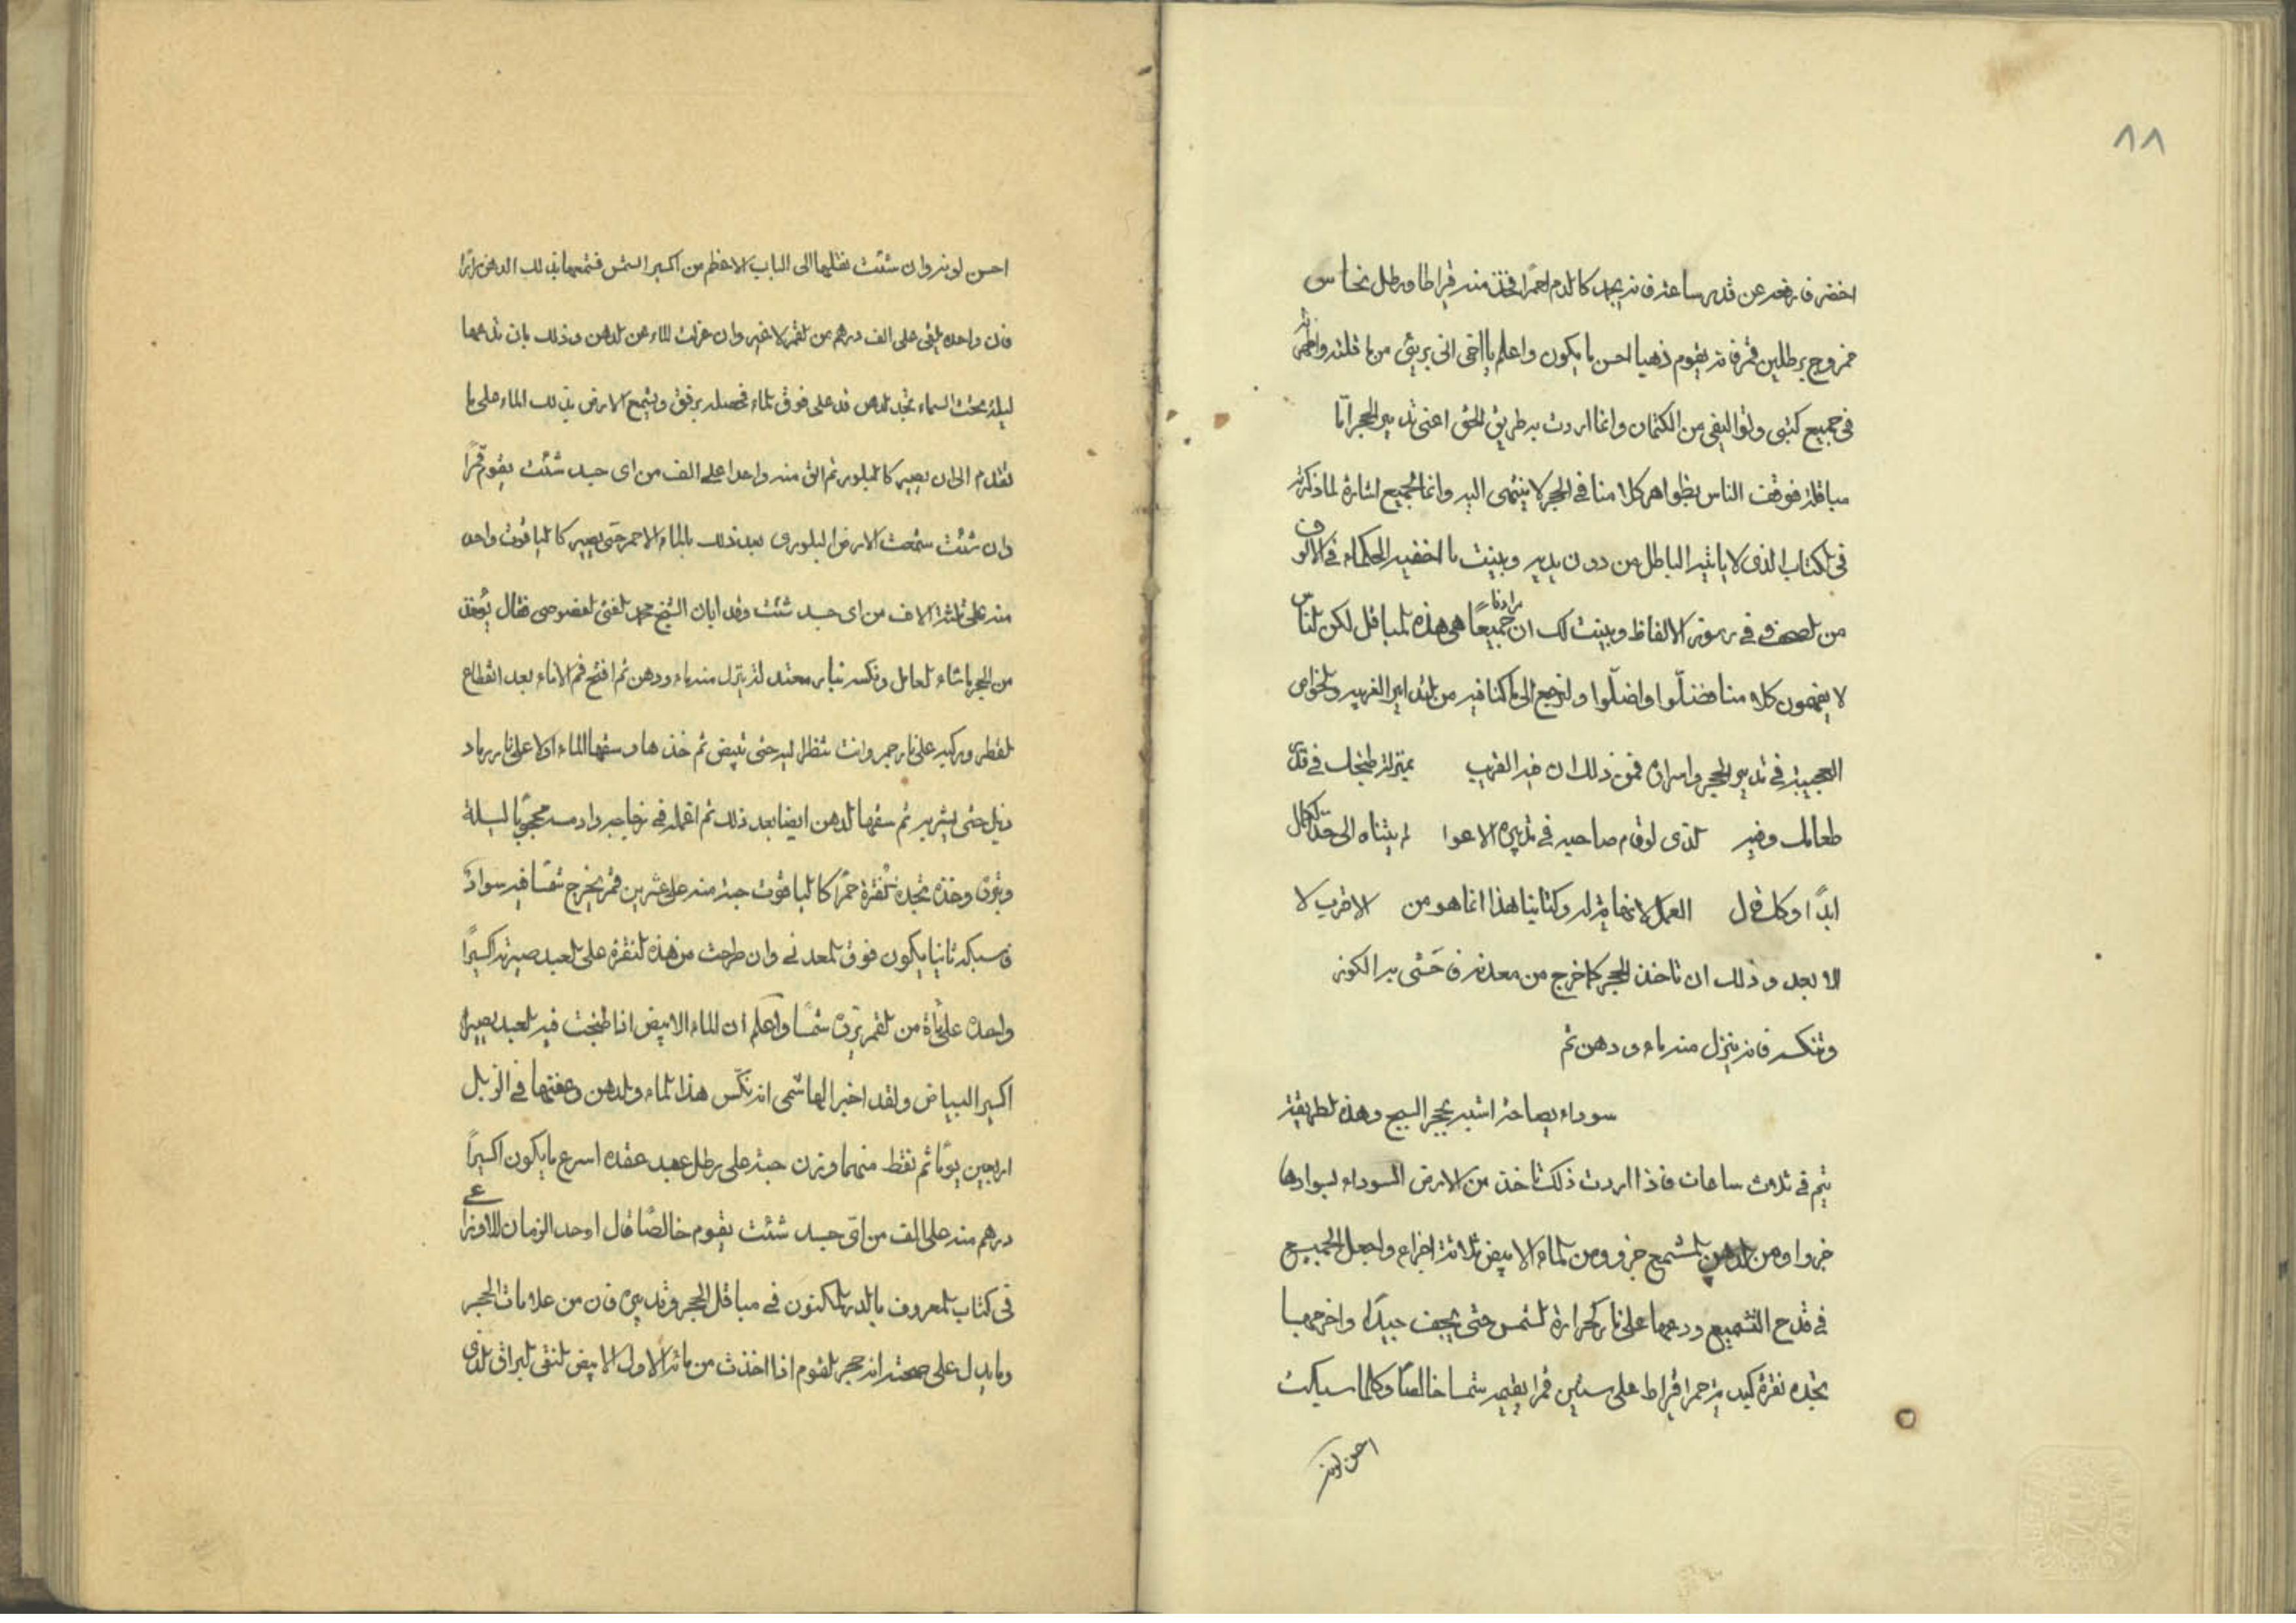 ٨٨
اخضر فارفعه عن قدر ساعة فانه يجمد كالدم احمرا فخذ منه قيراطا ورطل نحاس
ممزوج برطلين قمر فانه يقوم ذهبا احسن ما يكون واعلم يا اخي اني بريئ من ما قلته واظهرته
في جميع كتبي وتواليفي من الكتمان وانما اردت به طريق الحق اعني تدبير الحجر اما
مباقلة فوقف الناس بظواهر كلامنا في الحجر لا ينتهى اليه وانما الجميع اشارة لما ذكرته
في الكتاب الذي لا ياتيه الباطل من دون يديه وبينت ما اخفيه الحكماء في الالوف
من الصحف في رموز الالفاظ وبينت لك ان مرادنا جميعًا هي هذه المباقل لكن الناس
لا يفهمون كلامنا فضلّوا واضلّوا ولنرجع الى ما كنا فيه من التدابير الغريبه والخواص
العجيبة في تدبير الحجر واسراره فمن ذلك ان فيه القريب بمنزلة طبخك في قدر
طعامك وفيه الذي لو قام صاحبه في تدبيره الاعوا لم يتناه الى حدّ الكمال
ابدًا وكل قال العمل لا نهاية له وكتابنا هذا انما هو من الاقرب لا
الابعد وذلك ان تاخذ الحجر كما خرج من معدنه فاحشى به الكوز
وتنكسه فانه ينزل منه ماء ودهن ثم
سوداء بصاحة اشبه بحجر السبج وهذه الطريقة
يتم في ثلاث ساعات فاذا اردت ذلك تاخذ من الارض السوداء بسوادها
جزوا ومن الدهن المشمع جزو ومن الماء الابيض ثلاثة اجزاء واجعل الجميع
في قدح التشميع ودعها على نار كحرارة الشمس حتى يجف جيدًا واخرجها
تجده نقرة كبدية حمرا قيراط على ستين قمرا يقيمه شمسا خالصًا وكلما سبكت
احسن لونه
احسن لونه وان شئت نقلها الى الباب الاعظم من اكسير الشمس فشمعها بذلك الدهن مرارًا
فان واحده يلقى على الف درهم من القمر لا غير وان عزلت الماء عن الدهن وذلك بان تدعها
ليلة تحت السماء تجد الدهن قد على فوق الماء فحصله برفق ويشمع الارض بذلك الماء على ما
تقدم الى ان يصير كالبلور ثم الق منه واحدا على الف من اي جسد شئت يقوم قمرًا
وان شئت سمحت الارض البلوري بعد ذلك بالماء الاحمر حتى يصير كالياقوت واحد
منه على ثلثة الاف من اي جسد شئت وقد ابان الشيخ محمد الغني الغضوصى فقال يُؤخذ
من الحجر ما شاء العامل وتنكسه بنار معتدلة ينزل منه ماء ودهن ثم افتح فم الاناء بعد انقطاع
القطر وركبه على نار جمر وانت تنظر اليه حتى تبيض ثم خذها وسقها الماء اولا على نار رماد
ذبل حتى يشربه ثم سقها الدهن ايضا بعد ذلك ثم اعمله في زجاجه وادمسه محجوبًا ليلة
ويبرد وخذه تجده نقرة حمرا كالياقوت حبة منه على عشرين قمر يخرج شمسًا فيه سوادٌ
فاسبكه ثانيا يكون فوق المعدني وان طرحت من هذه النقرة على العبد صيرته اكسيرًا
واحده على مأة من القمر يرده شمسًا واعلم ان الماء الابيض اذا طبخت فيه العبد يصيره
اكسير البياض ولقد اخبر الهاشمي انه نكّس هذا الماء والدهن وعفنها في الزبل
اربعين يومًا ثم نقط منهما وزن حبة على رطل عبد عقده اسرع ما يكون اكسيرًا
درهم منه على الف من ايّ جسد شئت يقوم خالصًا قال اوحد الزمان الاوزاعى
في كتاب المعروف بالدر المكنون في مباقل الحجر وتدبيره فان من علامات الحجر
وما يدل على صحته انه حجر القوم اذا اخذت من مائه الاول الابيض النقي البراق الذي